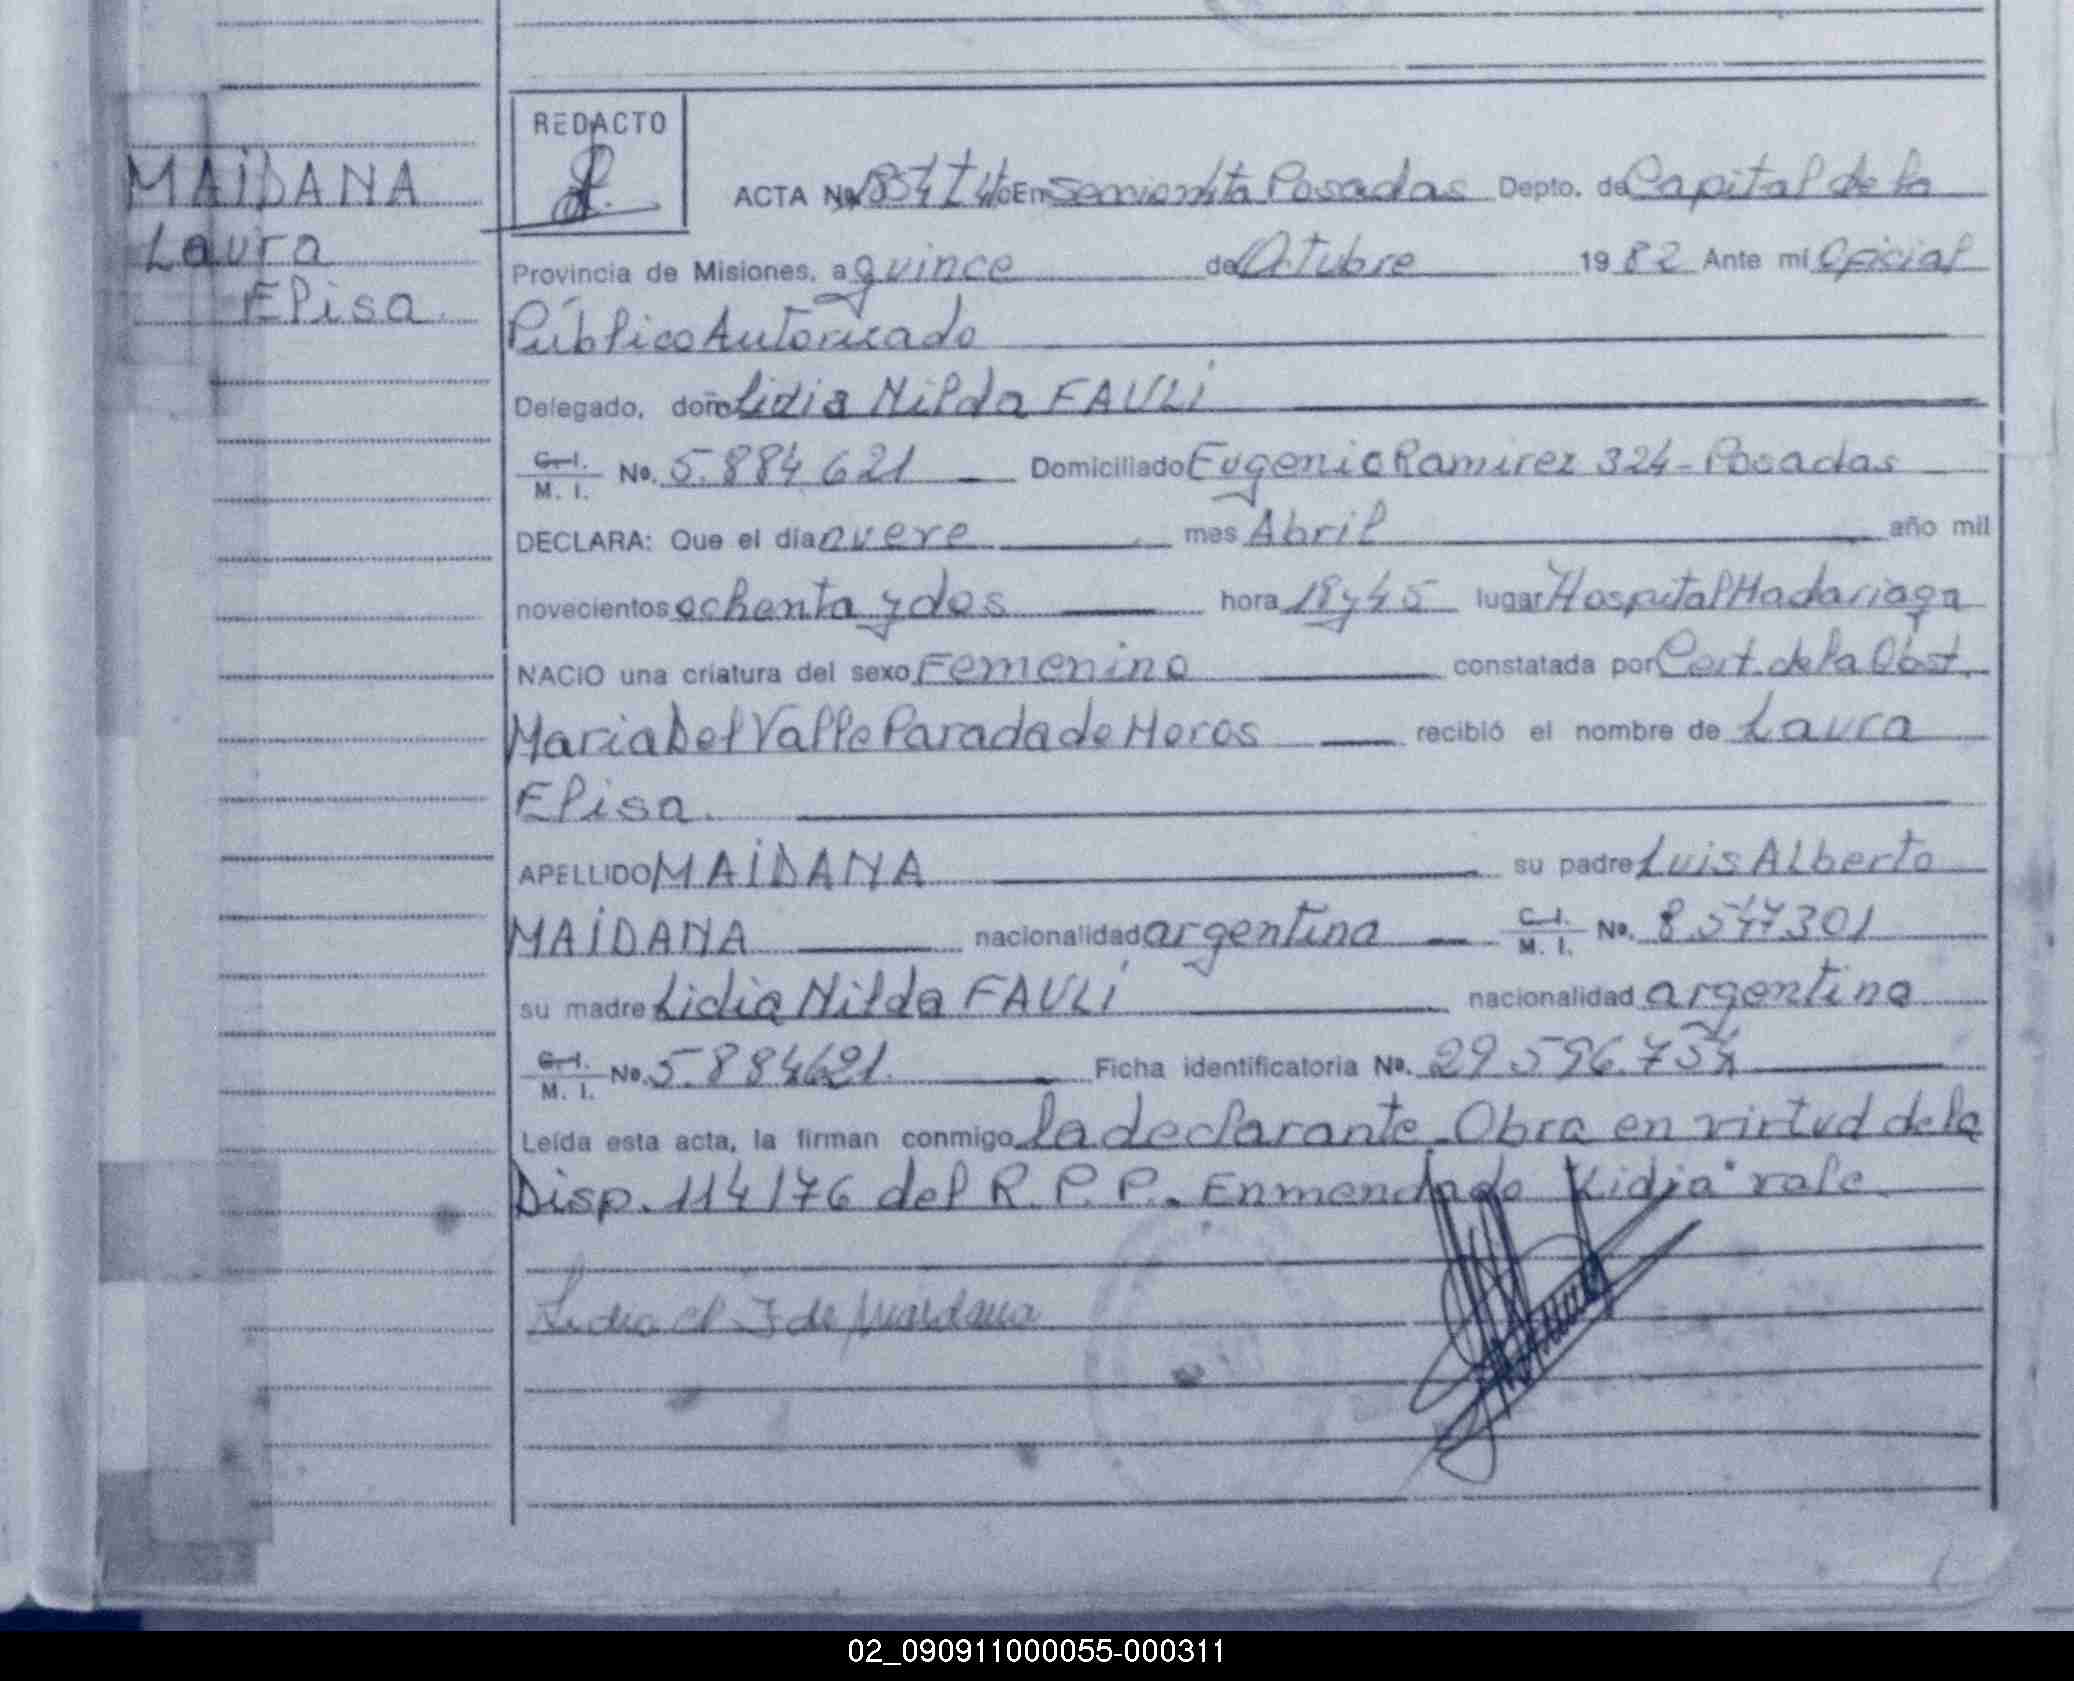 MAIDANA
Laura
Elisa
REDACTO
ACTA No En Posadas Depto. de Capital de la
Provincia de Misiones, a quince de Octubre 1982 Ante mí Oficial
Público Autorizado
Delegado, doña Lidia Nilda FAULI
C. I. M. I. No. 5.884 621 Domiciliado Eugenio Ramirez 324 - Posadas
DECLARA: Que el día nueve mes Abril año mil
novecientos ochenta y dos hora 19 y 45 lugar Hospital Madariaga
NACIO una criatura del sexo Femenino constatada por Cert. de la Obst.
Maria Del Valle Parada de Heros recibió el nombre de Laura
Elisa.
APELLIDO MAIDANA su padre Luis Alberto
MAIDANA nacionalidad argentina C. I. M. I. No. 8547301
su madre Lidia Nilda FAULI nacionalidad argentina
C. I. M. I. No. 5.884621. Ficha identificatoria No. 29.596.754
Leída esta acta, la firman conmigo la declarante. Obra en virtud de la
Disp. 114/76 del R. P. P. Enmendado "Lidia" vale
Lidia N F de Maidana
02_090911000055-000311